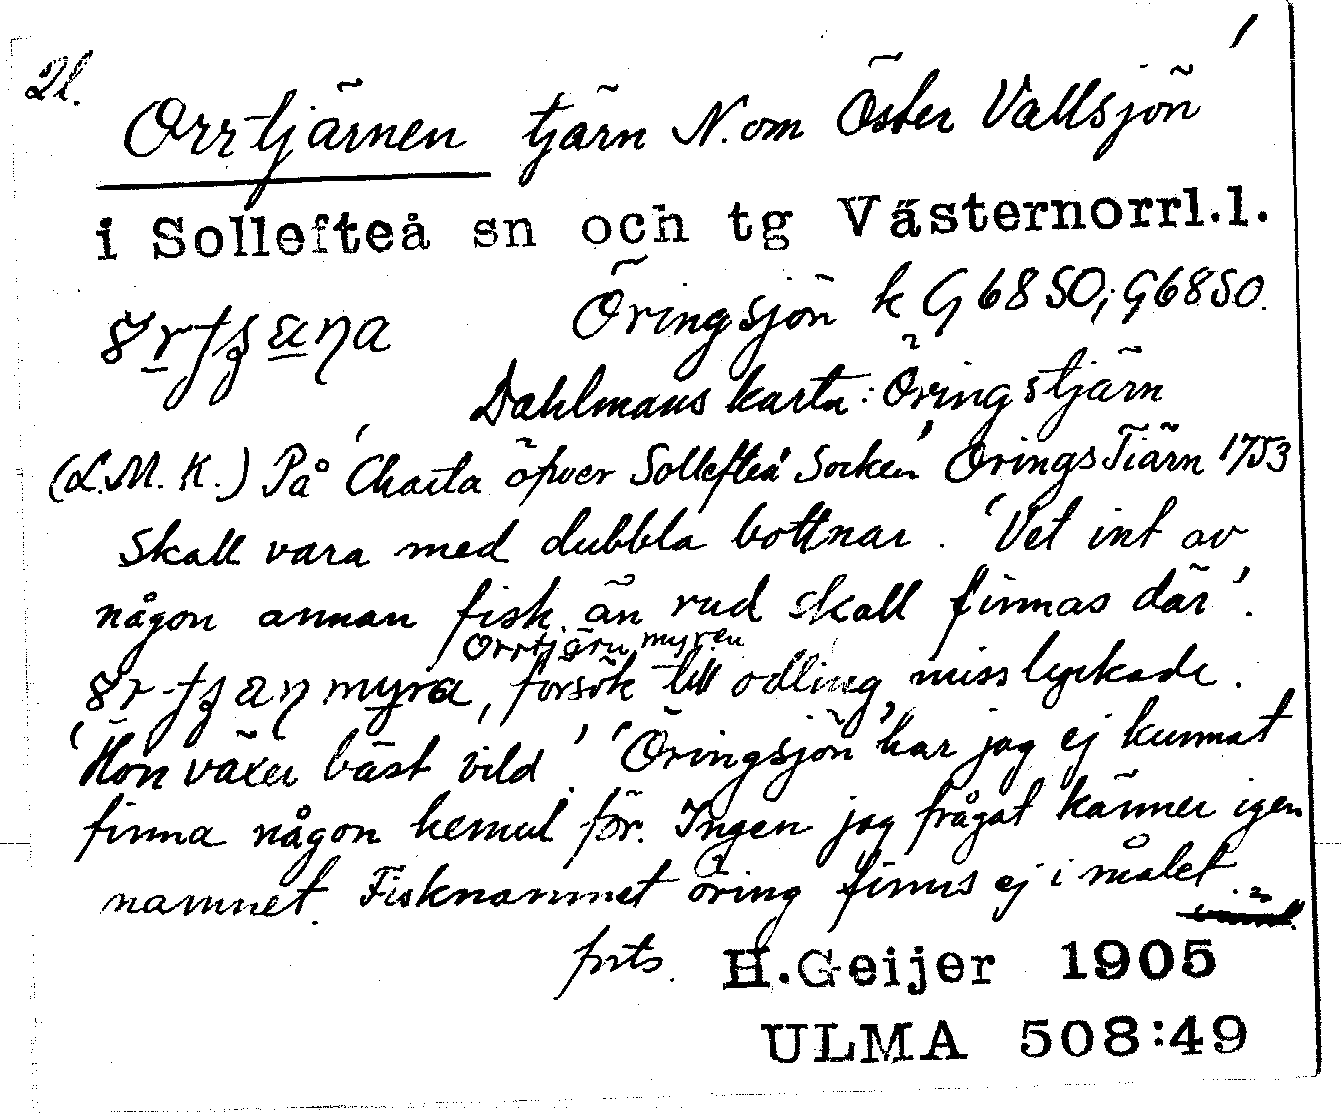 21. 1
Orrtjärnen tjärn N. om Öster Vallsjön
i Sollefteå sn och tg Västernorrl.l.
Öringsjön k G6850; G6850.
Dahlmans karta: Öringstjärn
(L.M.K.) På 'Charta öfver Sollefteå Socken' Örings Tiärn 1753
Skall vara med dubbla bottnar. 'Vet int av
någon annan fisk än rud skall finnas där'.
Orrtjärnmyren
myra, försök till odling, misslyckade.
'Hon växer bäst vild.' 'Öringsjön' har jag ej kunnat
finna någon hemul för. Ingen jag frågat känner igen
namnet. Fisknamnet öring finns ej i målet.
forts. H.Geijer 1905
ULMA 508:49